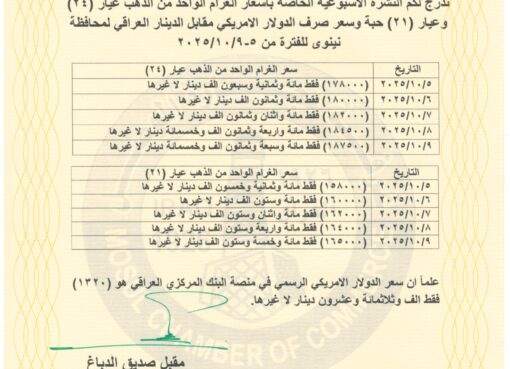 ندرج لكم النشرة الاسبوعية الخاصة بأسعار الغرام الواحد من الذهب عيار (٢٤)
وعيار (٢١) حبة وسعر صرف الدولار الامريكي مقابل الدينار العراقي لمحافظة
نينوى للفترة من ٥-٢٠٢٥/١٠/٩
التاريخ سعر الغرام الواحد من الذهب عيار (٢٤)
٢٠٢٥/١٠/٥ (١٧٨٠٠٠) فقط مائة وثمانية وسبعون الف دينار لا غيرها
٢٠٢٥/١٠/٦ (١٨٠٠٠٠) فقط مائة وثمانون الف دينار لا غيرها
٢٠٢٥/١٠/٧ (١٨٢٠٠٠) فقط مائة واثنان وثمانون الف دينار لا غيرها
٢٠٢٥/١٠/٨ (١٨٤٥٠٠) فقط مائة واربعة وثمانون الف وخمسمائة دينار لا غيرها
٢٠٢٥/١٠/٩ (١٨٧٥٠٠) فقط مائة وسبعة وثمانون الف وخمسمائة دينار لا غيرها
التاريخ سعر الغرام الواحد من الذهب عيار (٢١)
٢٠٢٥/١٠/٥ (١٥٨٠٠٠) فقط مائة وثمانية وخمسون الف دينار لا غيرها
٢٠٢٥/١٠/٦ (١٦٠٠٠٠) فقط مائة وستون الف دينار لا غيرها
٢٠٢٥/١٠/٧ (١٦٢٠٠٠) فقط مائة واثنان وستون الف دينار لا غيرها
٢٠٢٥/١٠/٨ (١٦٤٠٠٠) فقط مائة واربعة وستون الف دينار لا غيرها
٢٠٢٥/١٠/٩ (١٦٥٠٠٠) فقط مائة وخمسة وستون الف دينار لا غيرها
علماً ان سعر الدولار الامريكي الرسمي في منصة البنك المركزي العراقي هو (١٣٢٠)
فقط الف وثلاثمائة وعشرون دينار لا غيرها.
مقبل صديق الدباغ
CHAMBER OF COM